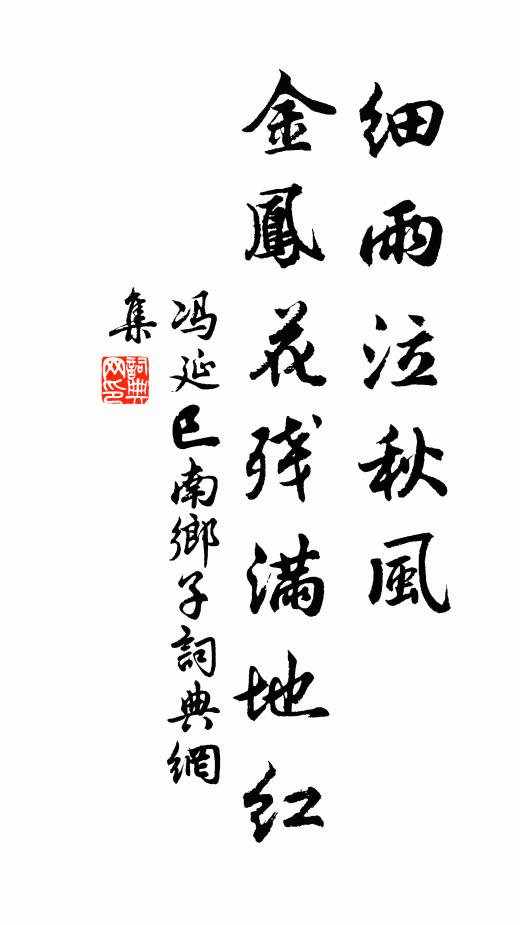 细雨泣秋風
金鳳花残满地红
冯延巳南鄉子詞典網
集
詞典网印